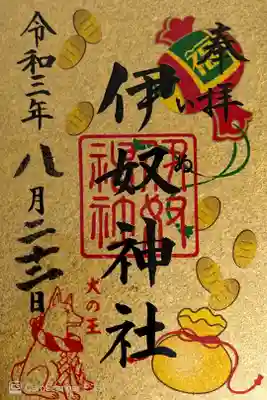 奉拝
伊奴神社
いぬ
伊奴神社
犬の王
令和三年八月二十二日
CS CamScanner